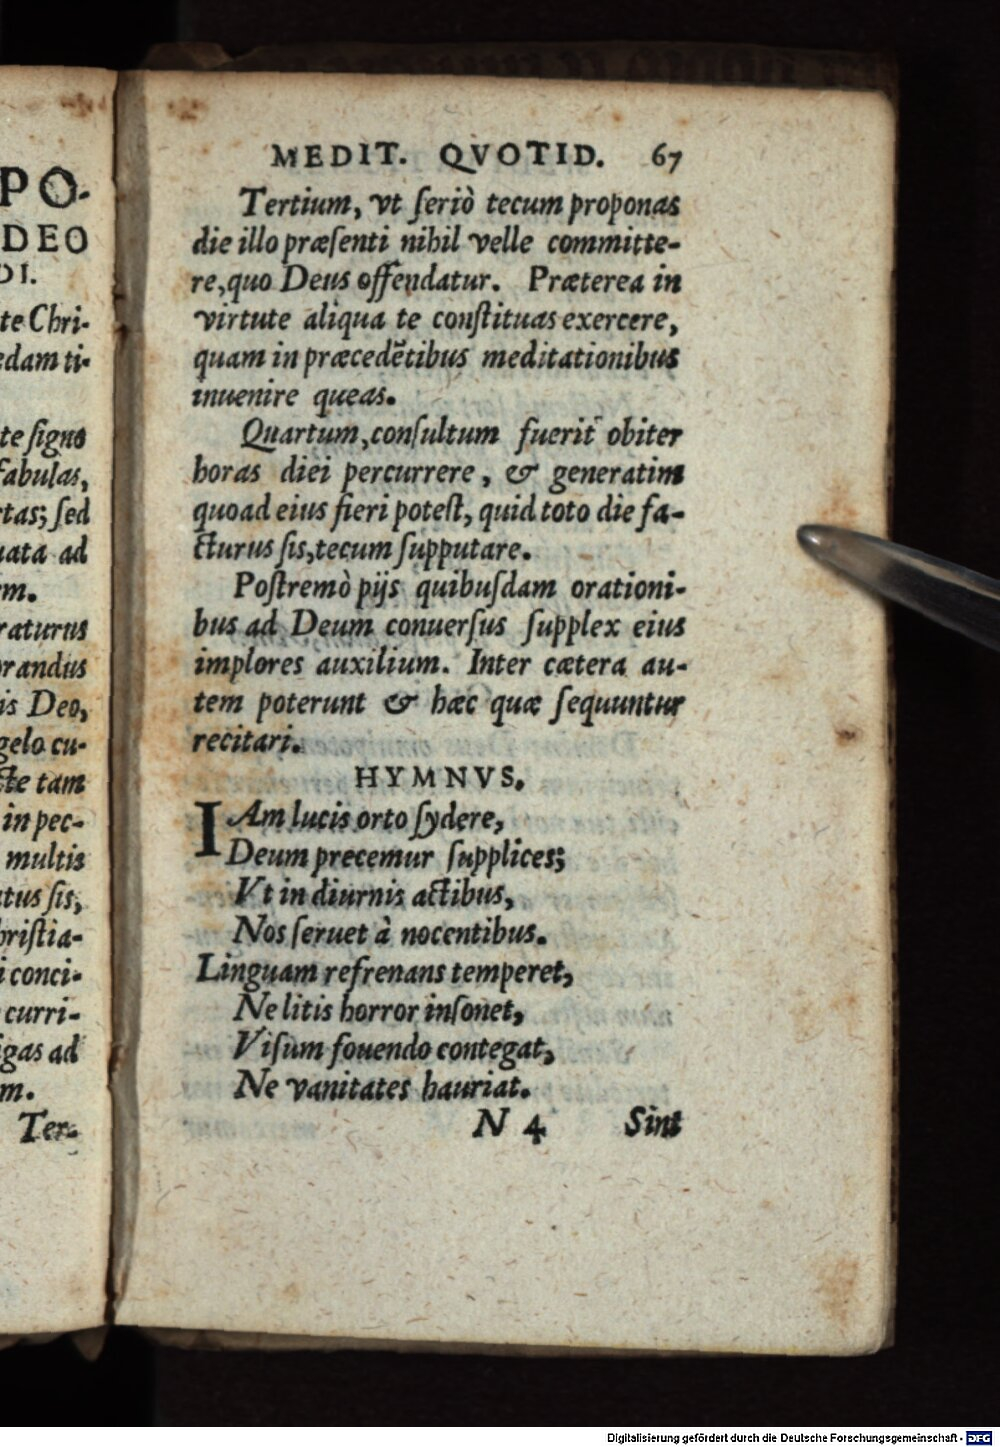 PO-
DEO
DI.
te Chri-
edam ti-
te signo
fabulas,
rtas; sed
uata ad
em.
raturus
orandus
is Deo,
gelo cu-
cte tam
in pec-
multis
atus sis,
hristia-
i conci-
curri-
igas ad
m.
Ter-
MEDIT. QVOTID. 67
Tertium, vt seriò tecum proponas
die illo præsenti nihil velle committe-
re, quo Deus offendatur. Præterea in
virtute aliqua te constituas exercere,
quam in præcedẽtibus meditationibus
inuenire queas.
Quartum, consultum fuerit obiter
horas diei percurrere, & generatim
quoad eius fieri potest, quid toto die fa-
cturus sis, tecum supputare.
Postremò pijs quibusdam orationi-
bus ad Deum conuersus supplex eius
implores auxilium. Inter cætera au-
tem poterunt & hæc quæ sequuntur
recitari.
HYMNVS.
IAm lucis orto sydere,
Deum precemur supplices;
Vt in diurnis actibus,
Nos seruet à nocentibus.
Linguam refrenans temperet,
Ne litis horror insonet,
Visum fouendo contegat,
Ne vanitates hauriat.
N 4 Sint
Digitalisierung gefördert durch die Deutsche Forschungsgemeinschaft - DFG